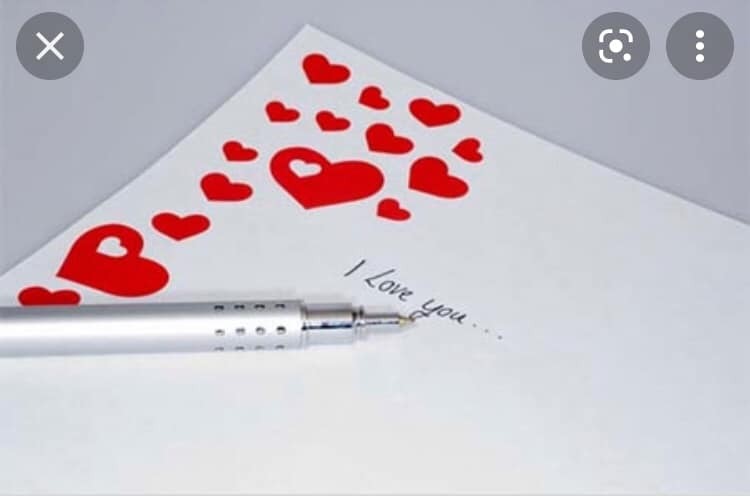 I Love you...